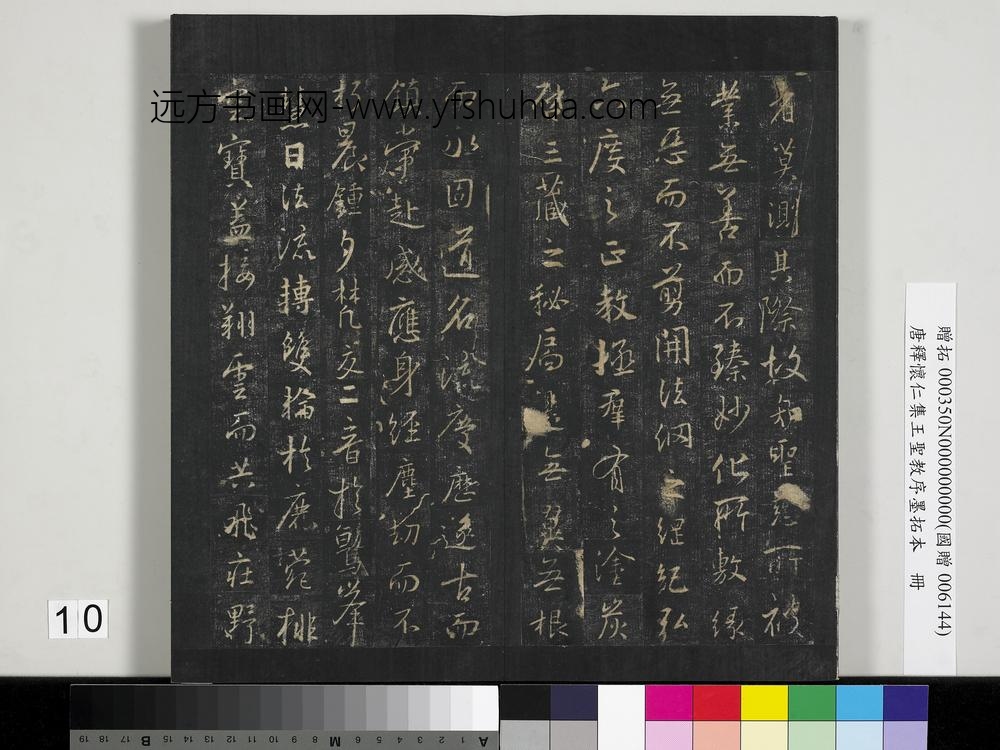 者莫測其際故知聖慈所被
業無善而不臻妙化所敷緣
無惡而不剪開法網之綱紀弘
六度之正教拯羣有之塗炭
啓三藏之秘扃無翼無根
而永固道名流慶歷遂古而
鎮常赴感應身經塵劫而不
朽晨鍾夕梵交二音於鷲峯
慧日法流轉雙輪於鹿菀排
空寶蓋接翔雲而共飛莊野
远方书画网-www.yfshuhua.com
贈拓 000350N000000000(國贈 006144)
唐釋懷仁集王聖教序墨拓本 冊
10
19 18 17 16 15 14 13 12 11 10 9 8 7 6 5 4 3 2 1
B M A